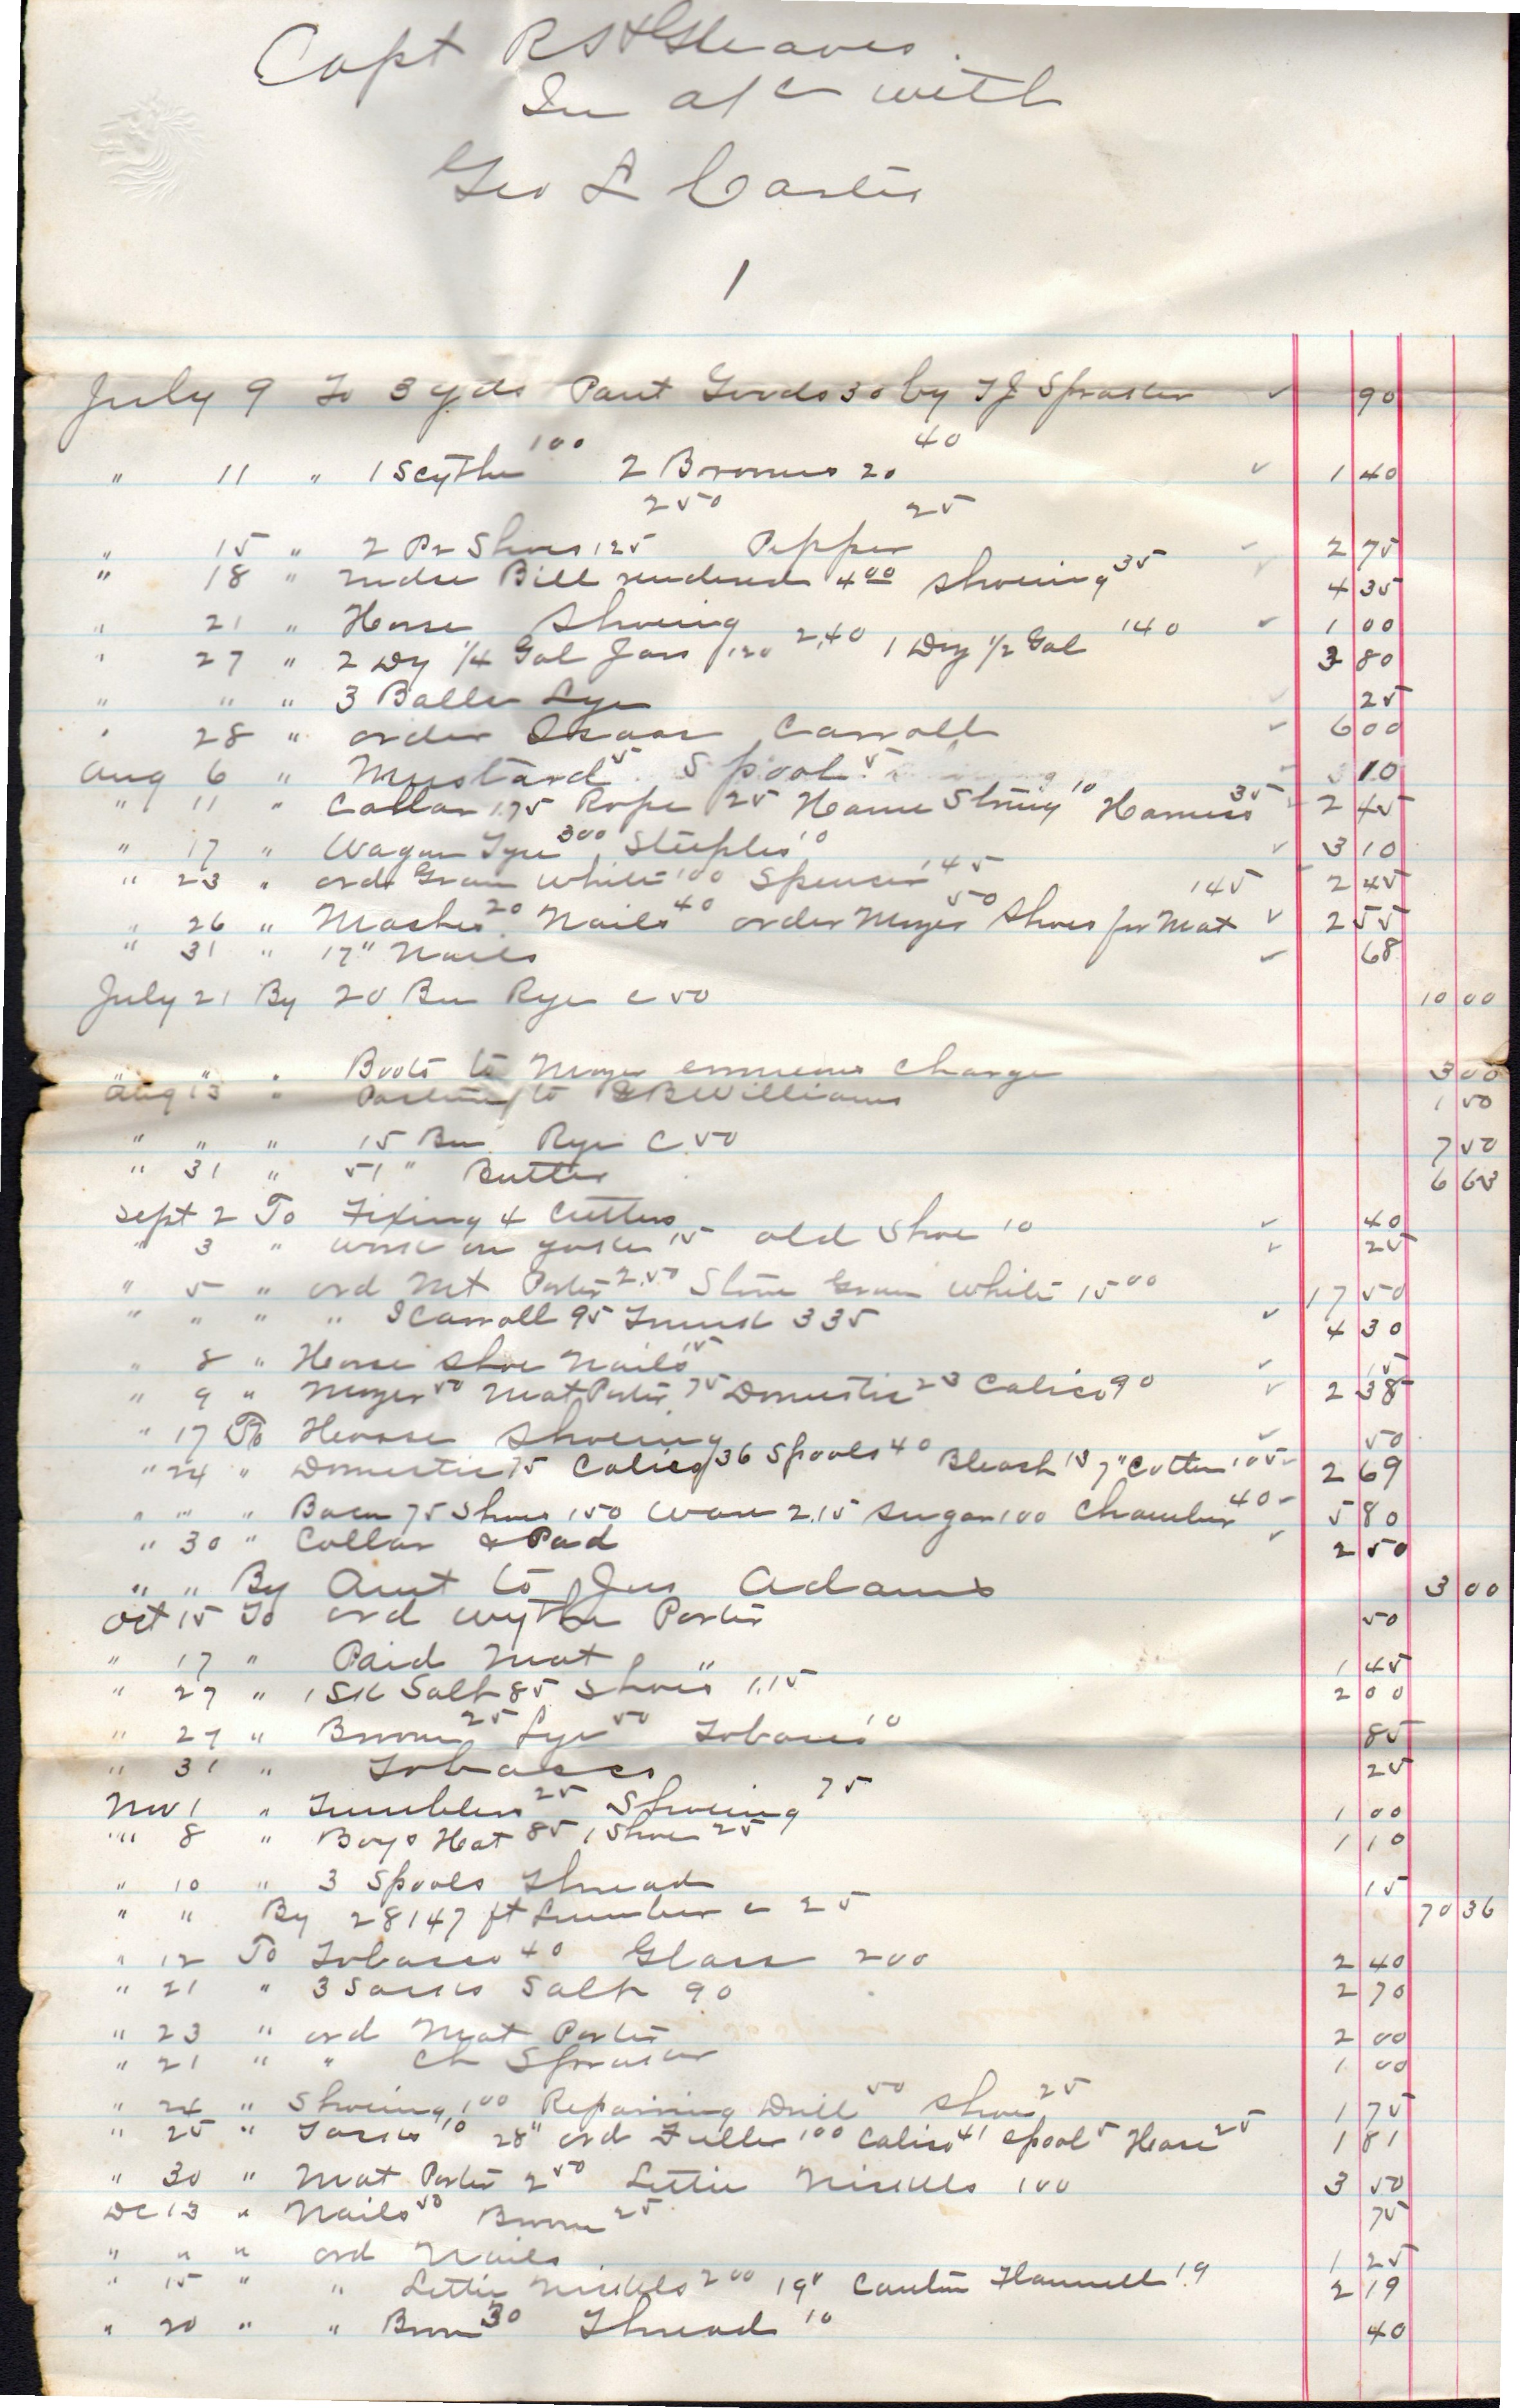 Capt R S H Gleaves.
In a/c with
Geo L Carter
1
July 9 To 3 yds Pant Goods 30 by T J Spraker ✓ 90
" 11 " 1 Scythe 100 2 Brooms 20 40 ✓ 1 40
" 15 " 2 Pr Shoes 125 250 Pepper 25 ✓ 2 75
" 18 " mdse Bill rendered 4 00 shoeing 35 ✓ 4 35
" 21 " Horse Shoeing ✓ 1 00
" 27 " 2 Dz 1/4 Gal Jars 1.20 2.40 1 Dz 1/2 Gal 140 3 80
" " " 3 Balls Lye ✓ 25
" 28 " order Isaac Carroll ✓ 6 00
Aug 6 " Mustard 5 Spool 5 10
" 11 " Collar 1.75 Rope 25 Hame String 10 Harness 35 ✓ 2 45
" 17 " Wagon Tyre 300 Steeples 10 ✓ 3 10
" 23 " ord Green White 100 Spencer 145 2 45
" 26 " Masher 20 Nails 40 order Moyer 50 Shoes for Mat 145 ✓ 2 55
" 31 " 17" Nails ✓ 68
July 21 By 20 Bu Rye c 50 10 00
" " " Boots to Moyer erroneous charge 3 00
Aug 13 " Pasturing to B B Williams 1 50
" " " 15 Bu Rye c 50 7 50
" 31 " 51 " Butter 6 63
Sept 2 To Fixing 4 Cutters ✓ 40
" 3 " work on yoke 15 old Shoe 10 ✓ 25
" 5 " ord Mt Porter 2.50 Same Green White 15 00 17 50
" " " " I Carroll 95 Trunk 335 ✓ 4 30
" 8 " Horse Shoe Nails 15 ✓ 15
" 9 " Moyer 50 Mat Porter 75 Domestic 23 Calico 90 ✓ 2 38
" 17 To Horse Shoeing ✓ 50
" 24 " Domestic 75 Calico 36 Spools 40 Bleach 13 7" Cotton 105 ✓ 2 69
" " " Bacon 75 Shoes 150 Ware 2.15 Sugar 100 Chamber 40 ✓ 5 80
" 30 " Collar & Pad ✓ 2 50
" " By Amt to Jno Adams 3 00
Oct 15 To ord Wythe Porter 50
" 17 " Paid Mat " 1 45
" 27 " 1 Sk Salt 85 Shoes 1.15 2 00
" 27 " Broom 25 Lye 50 Tobacco 10 85
" 31 " Tobacco 25
Nov 1 " Tumblers 25 Shoeing 75 1 00
" 8 " Boys Hat 85 1 Shoe 25 1 10
" 10 " 3 Spools Thread 15
" " By 28147 ft Lumber c 25 70 36
" 12 To Tobacco 40 Glass 200 2 40
" 21 " 3 Sacks Salt 90 2 70
" 23 " ord Mat Porter 2 00
" 21 " " Ch Spraker 1 00
" 24 " Shoeing 100 Repairing Drill 50 Shoe 25 1 75
" 25 " Tacks 10 28" ord Fuller 100 Calico 41 Spool 5 Hose 25 1 81
" 30 " Mat Porter 2 50 Lettie Nickles 100 3 50
Dc 13 " Nails 50 Broom 25 75
" " " ord Nails 1 25
" 15 " " Lettie Nickles 200 19" Canton Flannell 19 2 19
" 20 " " Broom 30 Thread 10 40